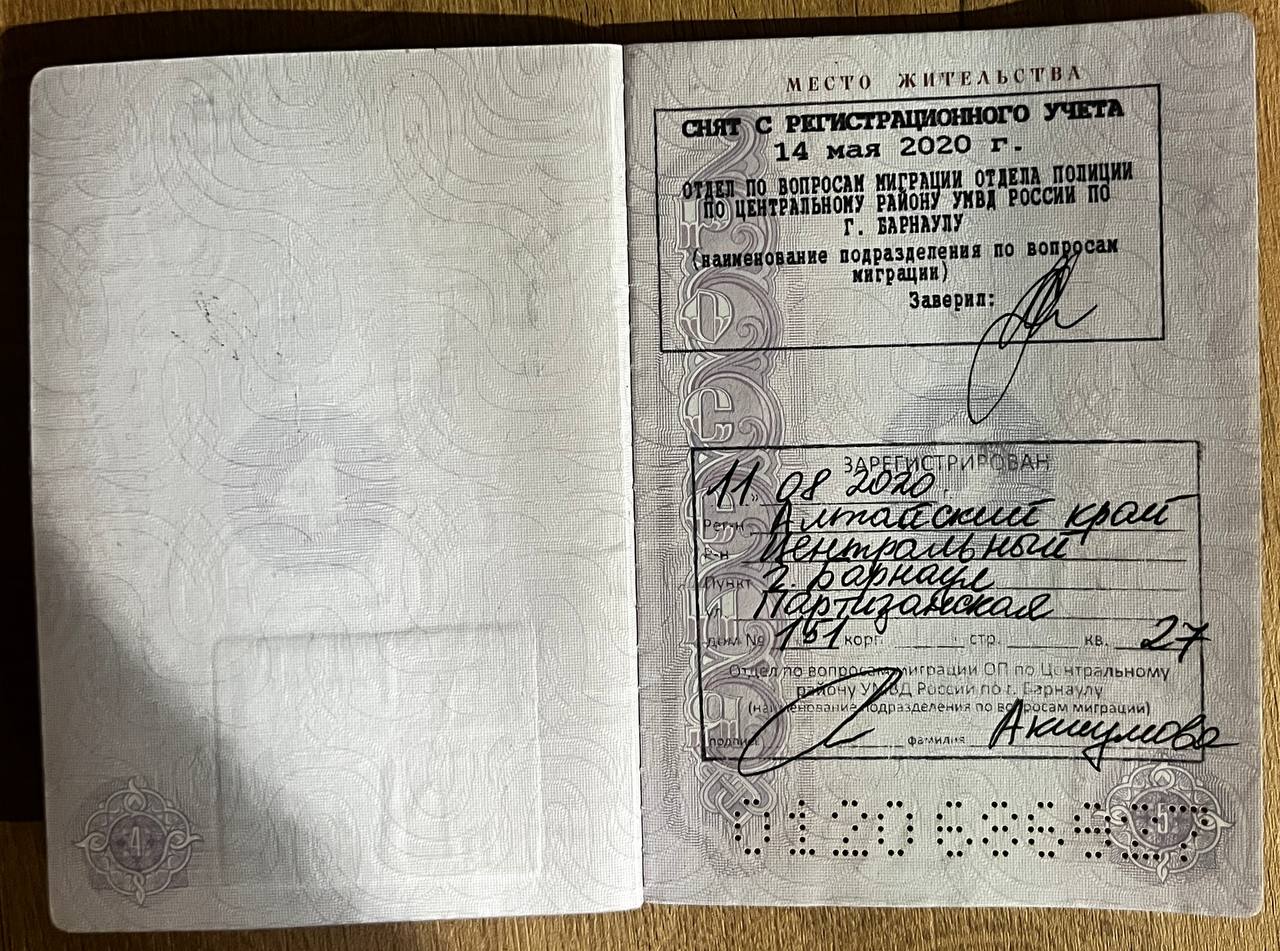 МЕСТО ЖИТЕЛЬСТВА
СНЯТ С РЕГИСТРАЦИОННОГО УЧЕТА
14 мая 2020 г.
ОТДЕЛ ПО ВОПРОСАМ МИГРАЦИИ ОТДЕЛА ПОЛИЦИИ
ПО ЦЕНТРАЛЬНОМУ РАЙОНУ УМВД РОССИИ ПО
Г. БАРНАУЛУ
(наименование подразделения по вопросам
миграции)
Заверил:
ЗАРЕГИСТРИРОВАН
11 08 2020
Рег-н Алтайский край
р-н Центральный
Пункт г. Барнаул
ул. Партизанская
дом № 151 корп. стр. кв. 27
Отдел по вопросам миграции ОП по Центральному
району УМВД России по г. Барнаулу
(наименование подразделения по вопросам миграции)
подпись фамилия
4
5